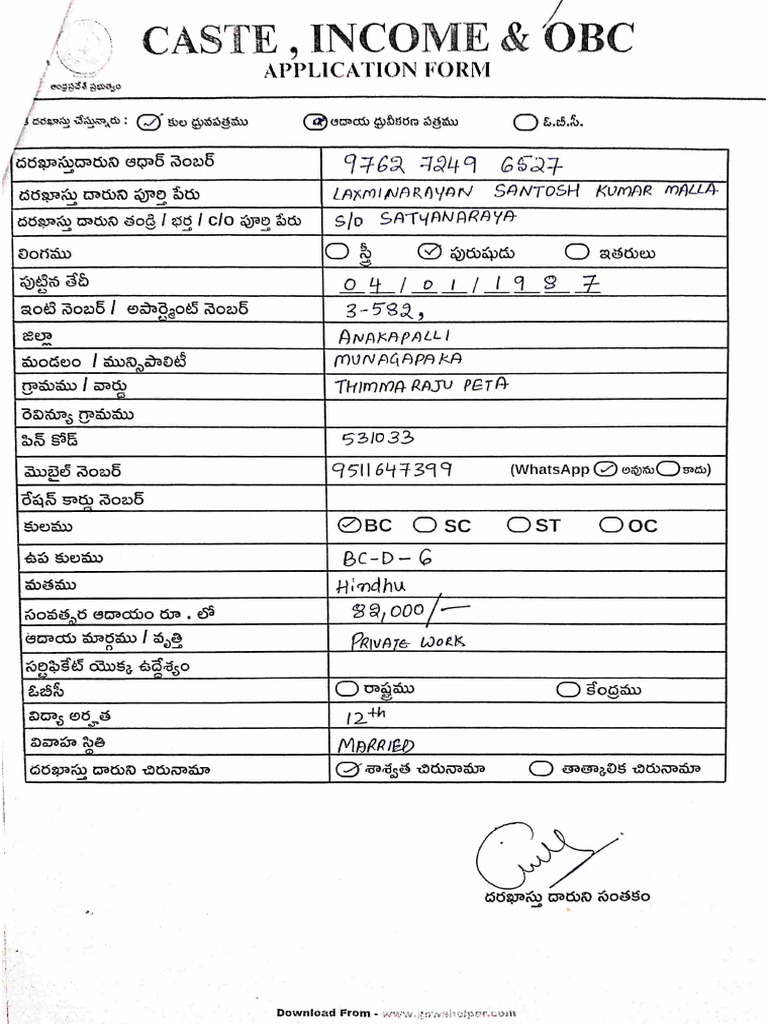 CASTE , INCOME & OBC
APPLICATION FORM
ఆంధ్రప్రదేశ్ ప్రభుత్వం
దరఖాస్తు చేస్తున్నారు : కుల ధ్రువపత్రము ఆదాయ ధ్రువీకరణ పత్రము ఓ.బీ.సీ.
దరఖాస్తుదారుని ఆధార్ నెంబర్ 9762 7249 6527
దరఖాస్తు దారుని పూర్తి పేరు LAXMINARAYAN SANTOSH KUMAR MALLA
దరఖాస్తు దారుని తండ్రి / భర్త / c/o పూర్తి పేరు S/O SATYANARAYA
లింగము స్త్రీ పురుషుడు ఇతరులు
పుట్టిన తేదీ 04/01/1987
ఇంటి నెంబర్ / అపార్ట్మెంట్ నెంబర్ 3-582,
జిల్లా ANAKAPALLI
మండలం / మున్సిపాలిటీ MUNAGAPAKA
గ్రామము / వార్డు THIMMARAJU PETA
రెవిన్యూ గ్రామము
పిన్ కోడ్ 531033
మొబైల్ నెంబర్ 9511647399 (WhatsApp అవును కాదు)
రేషన్ కార్డు నెంబర్
కులము BC SC ST OC
ఉప కులము BC-D-6
మతము Hindhu
సంవత్సర ఆదాయం రూ . లో 82,000/-
ఆదాయ మార్గము / వృత్తి PRIVATE WORK
సర్టిఫికేట్ యొక్క ఉద్దేశ్యం
ఓబీసీ రాష్ట్రము కేంద్రము
విద్యా అర్హత 12th
వివాహ స్థితి MARRIED
దరఖాస్తు దారుని చిరునామా శాశ్వత చిరునామా తాత్కాలిక చిరునామా
దరఖాస్తు దారుని సంతకం
Download From - www.gswshelper.com